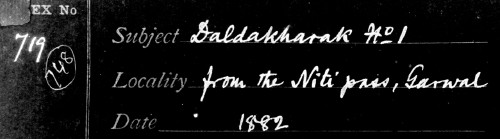 EX No
719
748
Subject Daldakharak No 1
Locality from the Niti pass, Garwal
Date 1882